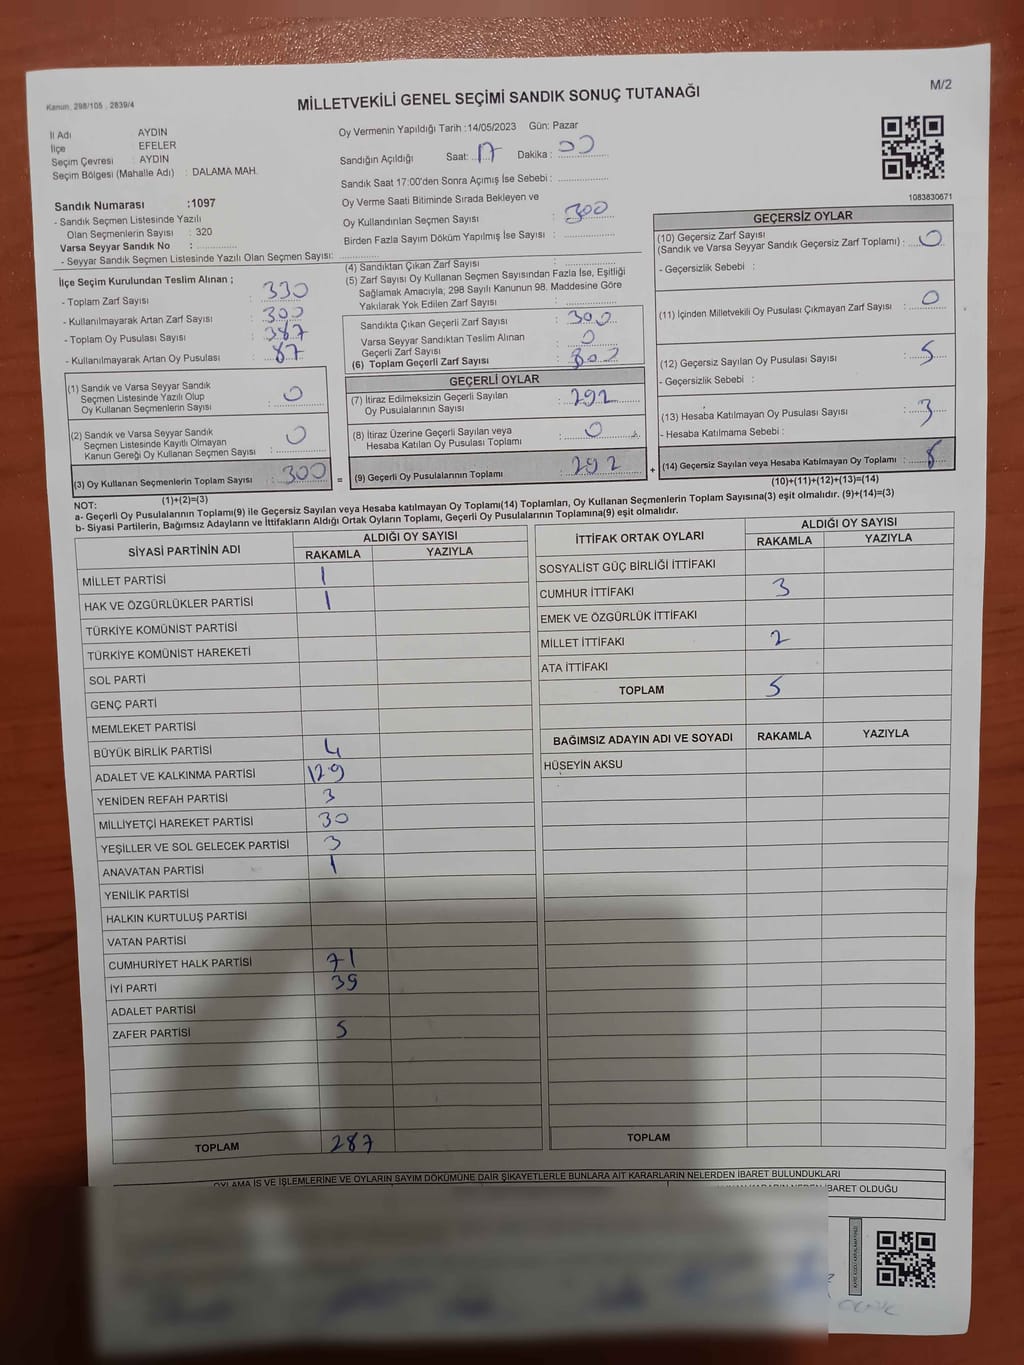 Kanun 298/105 , 2839/4
MİLLETVEKİLİ GENEL SEÇİMİ SANDIK SONUÇ TUTANAĞI
M/2
İl Adı AYDIN
İlçe EFELER
Seçim Çevresi : AYDIN
Seçim Bölgesi (Mahalle Adı) : DALAMA MAH.
Oy Vermenin Yapıldığı Tarih :14/05/2023 Gün: Pazar
Sandığın Açıldığı Saat: 17 Dakika : 00
Sandık Saat 17:00'den Sonra Açımış İse Sebebi :
Oy Verme Saati Bitiminde Sırada Bekleyen ve
Oy Kullandırılan Seçmen Sayısı : 300
Birden Fazla Sayım Döküm Yapılmış İse Sayısı :
1083830671
Sandık Numarası :1097
- Sandık Seçmen Listesinde Yazılı
Olan Seçmenlerin Sayısı : 320
Varsa Seyyar Sandık No :
- Seyyar Sandık Seçmen Listesinde Yazılı Olan Seçmen Sayısı:
İlçe Seçim Kurulundan Teslim Alınan ;
- Toplam Zarf Sayısı : 330
- Kullanılmayarak Artan Zarf Sayısı : 300
- Toplam Oy Pusulası Sayısı : 387
- Kullanılmayarak Artan Oy Pusulası : 87
(1) Sandık ve Varsa Seyyar Sandık
Seçmen Listesinde Yazılı Olup
Oy Kullanan Seçmenlerin Sayısı : 0
(2) Sandık ve Varsa Seyyar Sandık
Seçmen Listesinde Kayıtlı Olmayan
Kanun Gereği Oy Kullanan Seçmen Sayısı : 0
(3) Oy Kullanan Seçmenlerin Toplam Sayısı : 300
(1)+(2)=(3)
=
(4) Sandıktan Çıkan Zarf Sayısı :
(5) Zarf Sayısı Oy Kullanan Seçmen Sayısından Fazla İse, Eşitliği
Sağlamak Amacıyla, 298 Sayılı Kanunun 98. Maddesine Göre
Yakılarak Yok Edilen Zarf Sayısı :
Sandıkta Çıkan Geçerli Zarf Sayısı : 300
Varsa Seyyar Sandıktan Teslim Alınan
Geçerli Zarf Sayısı : 0
(6) Toplam Geçerli Zarf Sayısı : 300
GEÇERLİ OYLAR
(7) İtiraz Edilmeksizin Geçerli Sayılan
Oy Pusulalarının Sayısı : 292
(8) İtiraz Üzerine Geçerli Sayılan veya
Hesaba Katılan Oy Pusulası Toplamı : 0
(9) Geçerli Oy Pusulalarının Toplamı : 292
+
GEÇERSİZ OYLAR
(10) Geçersiz Zarf Sayısı
(Sandık ve Varsa Seyyar Sandık Geçersiz Zarf Toplamı) : 0
- Geçersizlik Sebebi :
(11) İçinden Milletvekili Oy Pusulası Çıkmayan Zarf Sayısı : 0
(12) Geçersiz Sayılan Oy Pusulası Sayısı : 5
- Geçersizlik Sebebi :
(13) Hesaba Katılmayan Oy Pusulası Sayısı : 3
- Hesaba Katılmama Sebebi :
(14) Geçersiz Sayılan veya Hesaba Katılmayan Oy Toplamı : 8
(10)+(11)+(12)+(13)=(14)
NOT:
a- Geçerli Oy Pusulalarının Toplamı(9) ile Geçersiz Sayılan veya Hesaba katılmayan Oy Toplamı(14) Toplamları, Oy Kullanan Seçmenlerin Toplam Sayısına(3) eşit olmalıdır. (9)+(14)=(3)
b- Siyasi Partilerin, Bağımsız Adayların ve İttifakların Aldığı Ortak Oyların Toplamı, Geçerli Oy Pusulalarının Toplamına(9) eşit olmalıdır.
SİYASİ PARTİNİN ADI ALDIĞI OY SAYISI
RAKAMLA YAZIYLA
MİLLET PARTİSİ 1
HAK VE ÖZGÜRLÜKLER PARTİSİ 1
TÜRKİYE KOMÜNİST PARTİSİ
TÜRKİYE KOMÜNİST HAREKETİ
SOL PARTİ
GENÇ PARTİ
MEMLEKET PARTİSİ
BÜYÜK BİRLİK PARTİSİ 4
ADALET VE KALKINMA PARTİSİ 129
YENİDEN REFAH PARTİSİ 3
MİLLİYETÇİ HAREKET PARTİSİ 30
YEŞİLLER VE SOL GELECEK PARTİSİ 3
ANAVATAN PARTİSİ 1
YENİLİK PARTİSİ
HALKIN KURTULUŞ PARTİSİ
VATAN PARTİSİ
CUMHURİYET HALK PARTİSİ 71
İYİ PARTİ 39
ADALET PARTİSİ
ZAFER PARTİSİ 5
TOPLAM 287
İTTİFAK ORTAK OYLARI ALDIĞI OY SAYISI
RAKAMLA YAZIYLA
SOSYALİST GÜÇ BİRLİĞİ İTTİFAKI
CUMHUR İTTİFAKI 3
EMEK VE ÖZGÜRLÜK İTTİFAKI
MİLLET İTTİFAKI 2
ATA İTTİFAKI
TOPLAM 5
BAĞIMSIZ ADAYIN ADI VE SOYADI RAKAMLA YAZIYLA
HÜSEYİN AKSU
TOPLAM
OYLAMA İŞ VE İŞLEMLERİNE VE OYLARIN SAYIM DÖKÜMÜNE DAİR ŞİKAYETLERLE BUNLARA AİT KARARLARIN NELERDEN İBARET BULUNDUKLARI
KARARIN NEDEN İBARET OLDUĞU